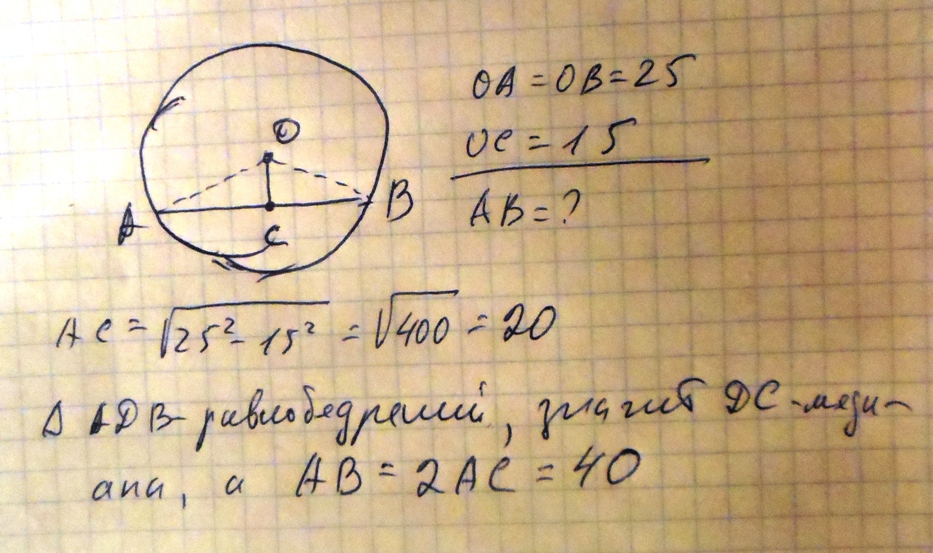 OA = OB = 25
OC = 15
AB = ?
O
A
B
C
AC = √25² - 15² = √400 = 20
Δ ADB - равнобедренный, значит DC - меди-
ана, а AB = 2AC = 40